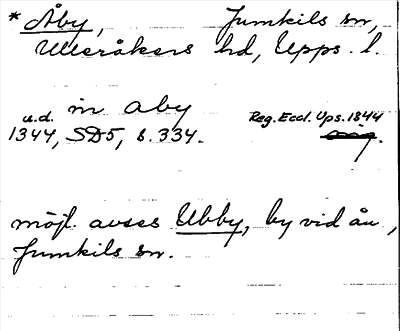 * Åby, Jumkils sn,
Ulleråkers hd, Upps. l.
u.d. in aby Reg. Eccl. Ups. 1844
1344, SD5, s. 334.
möjl. avses Ubby, by vid ån,
Jumkils sn.